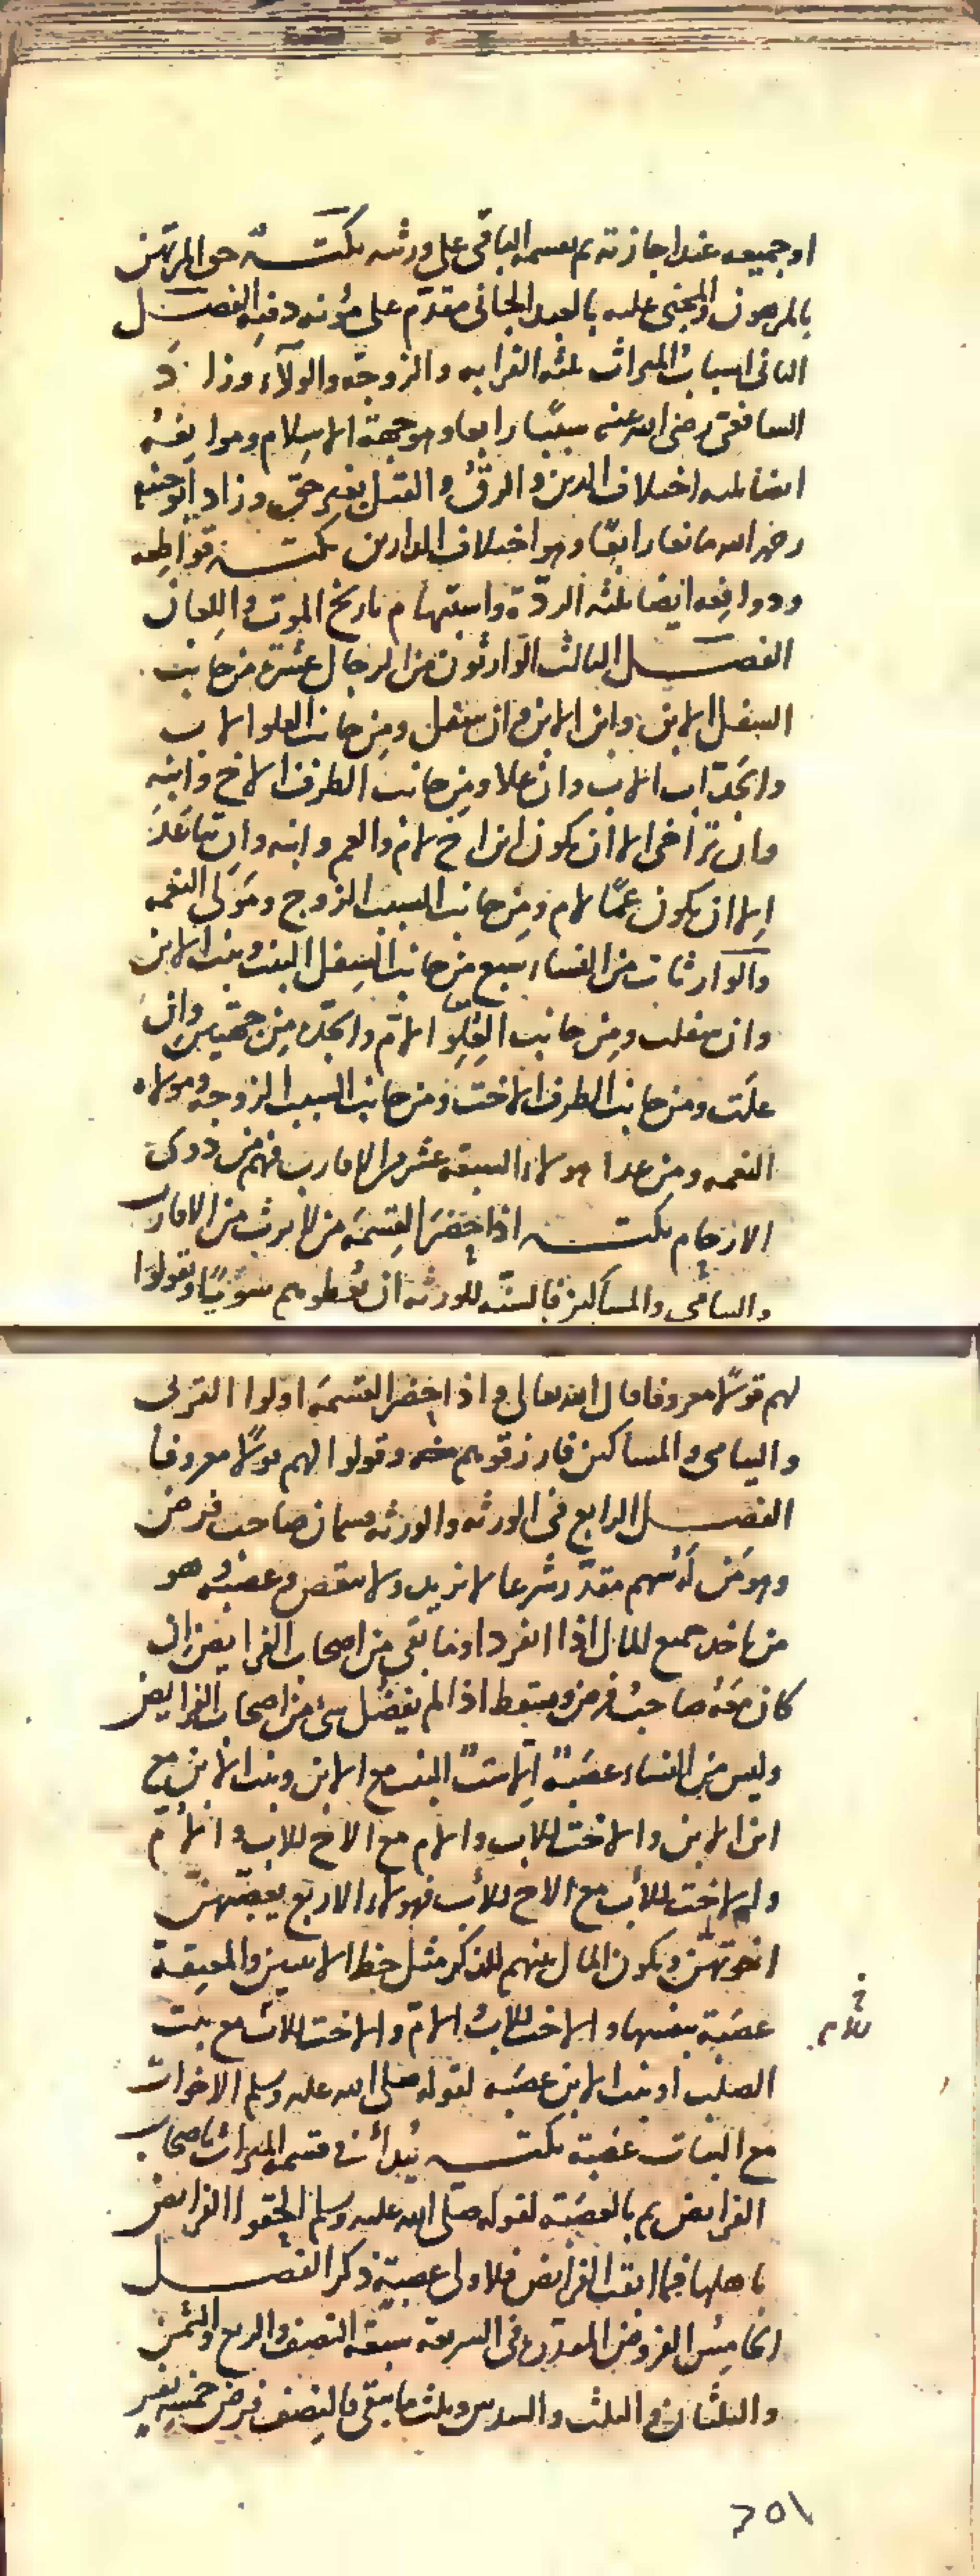 او جميعه عند اجازته ثم يقسم الباقى على ورثته نكتـــة حق المرتهن
بالمرهون والمجنى عليه بالعبد الجانى مقدم على مؤنة دفنه الفصـــل
الثانى اسباب الميراث ثلثة القرابة والزوجة والولاء وزاد
الشافعى رضى الله عنه سببا رابعا وهو جهة الاسلام وموانعه
ايضا ثلثة اختلاف الدين والرق والقتل بغير حق وزاد ابو حنيفة
رضى الله مانعا رابعا وهو اختلاف الدارين نكتـــة قواطعه
ودوافعه ايضا ثلثة الردة واستبهام تاريخ الموت واللعان
الفصـــل الثالث الوارثون من الرجال عشرة من جانب
السفل الابن وابن الابن وان سفل ومن جانب العلو الاب
والجد اب الاب وان علا ومن جانب الطرف الاخ وابنه
وان تراخى الا ان يكون ابن اخ لام والعم وابنه وان تباعد
الا ان يكون عما لام ومن جانب السبب الزوج ومولى النعمة
والوارثات من النساء سبع من جانب السفل البنت وبنت الابن
وان سفلت ومن جانب العلو الام والجدة من جهتين وان
علت ومن جانب الطرف الاخت ومن جانب السبب الزوجة ومولاة
النعمة ومن عدا هولاء السبعة عشر من الاقارب فهم من ذوى
الارحام نكتـــة اذا حضر القسمة من لا يرث من الاقارب
واليتامى والمساكين فالسنة للورثة ان يعطوهم شويا ويقولوا
لهم قولا معروفا قال الله تعالى واذا حضر القسمة اولوا القربى
واليتامى والمساكين فارزقوهم منه وقولوا لهم قولا معروفا
الفصـــل الرابع فى الورثة والورثة قسمان صاحب فرض
وهو من له سهم مقدر شرعا لا يزيد ولا ينقص وعصبة وهو
من ياخذ جميع المال اذا انفرد او ما بقى من اصحاب الفرايض ان
كان معه صاحب فرض ويسقط اذا لم يفضل شئ من اصحاب الفرايض
وليس من النساء عصبة الا ست البنت مع الابن وبنت الابن مع
ابن الابن والاخت للاب والام مع الاخ للاب والام
والاخت للاب مع الاخ للاب فهولاء الاربع يعصبهن
اخوتهن ويكون المال بينهم للذكر مثل حظ الانثيين والمعتقة
عصبة بنفسها والاخت للاب والام والاخت للاب مع بنت
الصلب او بنت الابن عصبة لقوله صلى الله عليه وسلم الاخوات
مع البنات عصبة نكتـــة يبدأ فى قسمة الميراث باصحاب
الفرايض ثم بالعصبة لقوله صلى الله عليه وسلم الحقوا الفرايض
باهلها فما ابقت الفرايض فلاولى عصبة ذكر الفصـــل
الخامس الفروض المقدرة فى الشريعة سبعة النصف والربع والثمن
والثلثان والثلث والسدس وثلث ما يبقى فالنصف فرض خمسة نفر
٢٥١